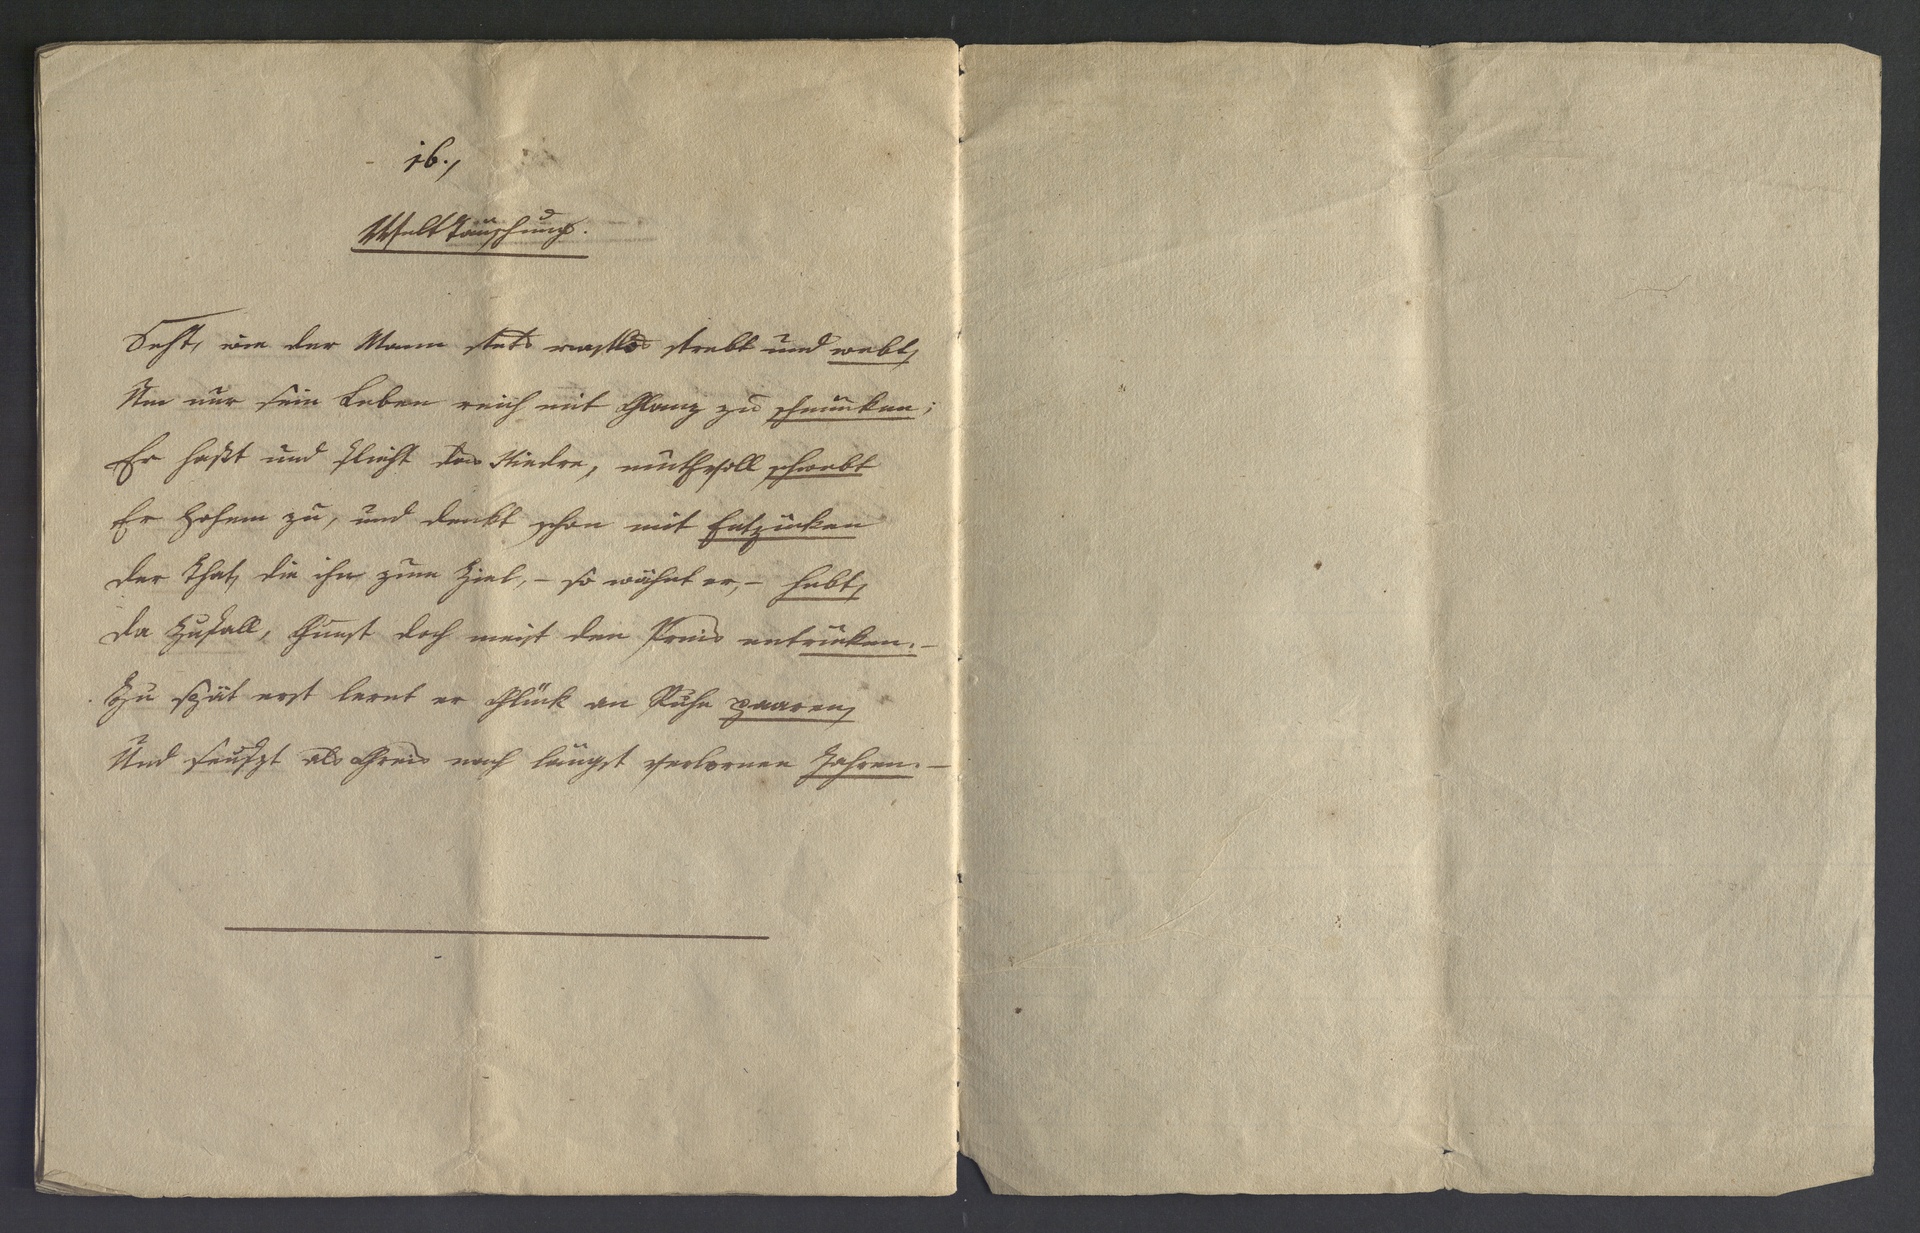 16.,
Welttäuschung.
Seht, wie der Mann stets rastlos strebt und webt,
Um nur sein Leben reich mit Glanz zu schmücken;
Er haßt und flieht das Niedre, muthvoll schwebt
Er Hohem zu, und denkt schon mit Entzücken
Der That, die ihn zum Ziel, – so wähnt er, – hebt,
Da Zufall, Gunst doch meist den Preis entrücken. –
Zu spät erst lernt er Glück an Ruhe paaren,
Und seufzt als Greis nach längst verlornen Jahren. –